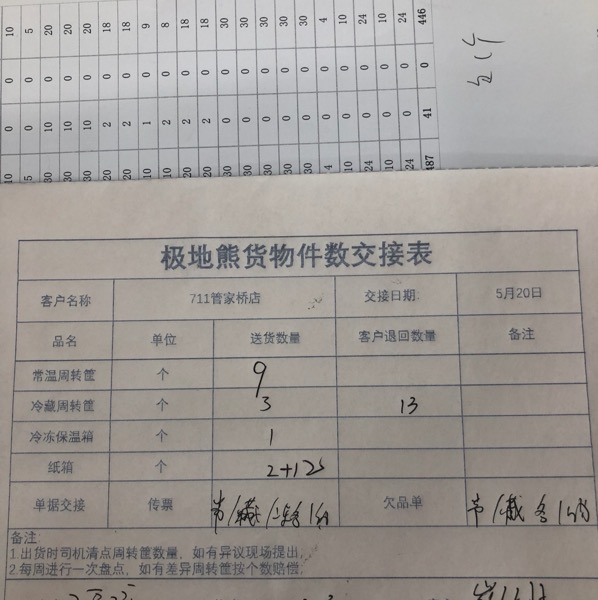 10 5 20 20 20 18 18 9 8 18 18 30 30 30 30 30 4 10 24 10 24 446
0 0 0 0 0 0 0 0 0 0 0 0 0 0 0 0 0 0 0 0 0 0
0 0 10 10 10 2 2 1 2 2 2 0 0 0 0 0 0 0 0 0 0 41
10 5 30 30 30 20 20 10 10 20 20 30 30 30 30 30 4 10 24 10 24 487
极地熊货物件数交接表
客户名称 711管家桥店 交接日期 5月20日
品名 单位 送货数量 客户退回数量 备注
常温周转筐 个 9
冷藏周转筐 个 3 13
冷冻保温箱 个 1
纸箱 个 2+12
单据交接 传票 欠品单
备注:
1.出货时司机清点周转筐数量，如有异议现场提出，
2.每周进行一次盘点，如有差异周转筐按个数赔偿